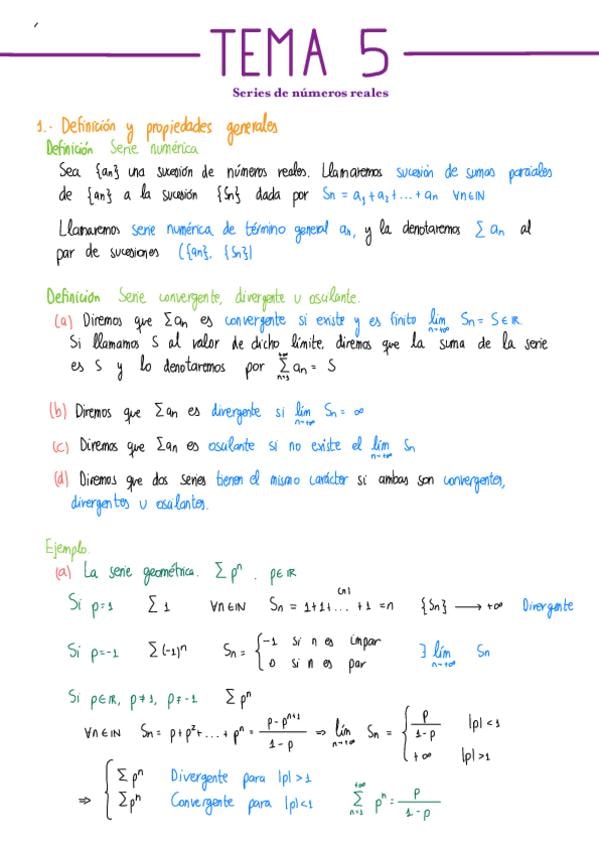 TEMA 5
Series de números reales
1.- Definición y propiedades generales
Definición Serie numérica
Sea {an} una sucesión de números reales. Llamaremos sucesión de sumas parciales
de {an} a la sucesión {Sn} dada por Sn = a₁ + a₂ + ... + an ∀n∈ℕ
Llamaremos serie numérica de término general an, y la denotaremos Σ an al
par de sucesiones ({an}, {Sn})
Definición Serie convergente, divergente u oscilante.
(a) Diremos que Σan es convergente si existe y es finito lím n→+∞ Sn = S∈ℝ
Si llamamos S al valor de dicho límite, diremos que la suma de la serie
es S y lo denotaremos por Σ n=1 +∞ an = S
(b) Diremos que Σan es divergente si lím n→+∞ Sn = ∞
(c) Diremos que Σan es oscilante si no existe el lím n→+∞ Sn
(d) Diremos que dos series tienen el mismo carácter si ambas son convergentes,
divergentes u oscilantes.
Ejemplo.
(a) La serie geométrica. Σ pⁿ . p∈ℝ
Si p=1 Σ 1 ∀n∈ℕ Sn = 1+1+... +1 = n (n) {Sn} → +∞ Divergente
Si p=-1 Σ(-1)ⁿ Sn = { -1 si n es impar
0 si n es par ∃ lím n→+∞ Sn
Si p∈ℝ, p≠1, p≠-1 Σ pⁿ
∀n∈ℕ Sn = p+p²+...+pⁿ = (p-pⁿ⁺¹)/(1-p) ⇒ lím n→+∞ Sn = { p/(1-p) |p|<1
+∞ |p|>1
⇒ { Σ pⁿ Divergente para |p|>1
Σpⁿ Convergente para |p|<1 Σ n=1 +∞ pⁿ = p/(1-p)